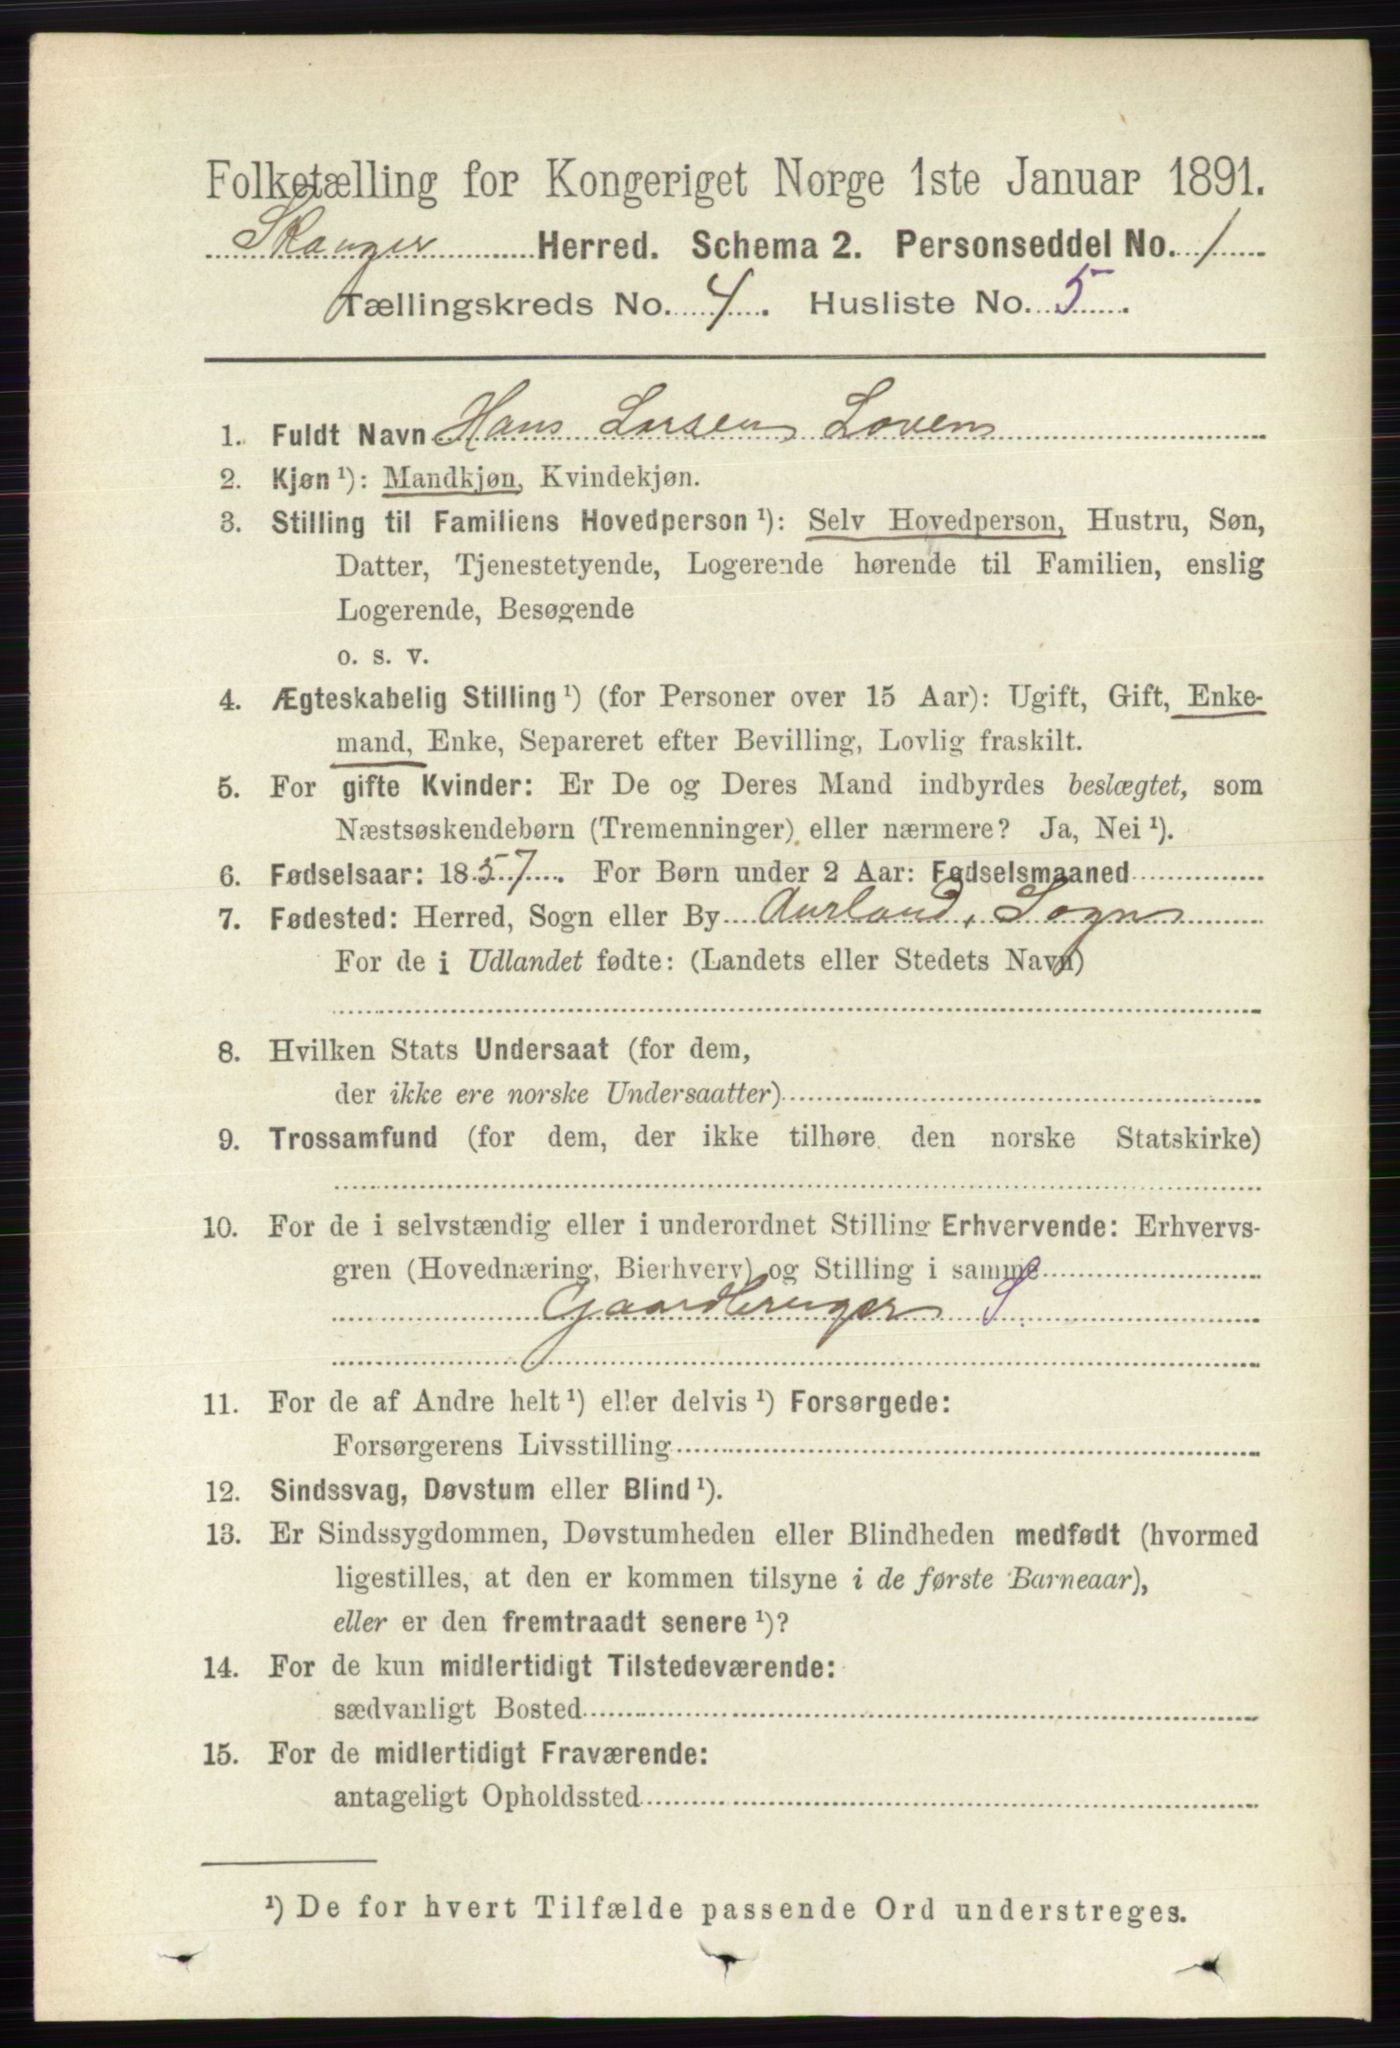 Folketælling for Kongeriget Norge 1ste Januar 1891.
Skauger Herred. Schema 2. Personseddel No. 1
Tællingskreds No. 4. Husliste No. 5.
1. Fuldt Navn Hans Larsen Loven
2. Kjøn ¹): Mandkjøn, Kvindekjøn.
3. Stilling til Familiens Hovedperson ¹): Selv Hovedperson, Hustru, Søn,
Datter, Tjenestetyende, Logerende hørende til Familien, enslig
Logerende, Besøgende
o. s. v.
4. Ægteskabelig Stilling ¹) (for Personer over 15 Aar): Ugift, Gift, Enke-
mand, Enke, Separeret efter Bevilling, Lovlig fraskilt.
5. For gifte Kvinder: Er De og Deres Mand indbyrdes beslægtet, som
Næstsøskendebørn (Tremenninger) eller nærmere? Ja, Nei ¹).
6. Fødselsaar: 1857. For Børn under 2 Aar: Fødselsmaaned
7. Fødested: Herred, Sogn eller By Aurland, Sogn
For de i Udlandet fødte: (Landets eller Stedets Navn)
8. Hvilken Stats Undersaat (for dem,
der ikke ere norske Undersaatter)
9. Trossamfund (for dem, der ikke tilhøre den norske Statskirke)
10. For de i selvstændig eller i underordnet Stilling Erhvervende: Erhvervs-
gren (Hovednæring, Bierhverv) og Stilling i samme
Gaardbruger S
11. For de af Andre helt ¹) eller delvis ¹) Forsørgede:
Forsørgerens Livsstilling
12. Sindssvag, Døvstum eller Blind ¹).
13. Er Sindssygdommen, Døvstumheden eller Blindheden medfødt (hvormed
ligestilles, at den er kommen tilsyne i de første Barneaar),
eller er den fremtraadt senere ¹)?
14. For de kun midlertidigt Tilstedeværende:
sædvanligt Bosted
15. For de midlertidigt Fraværende:
antageligt Opholdssted
¹) De for hvert Tilfælde passende Ord understreges.